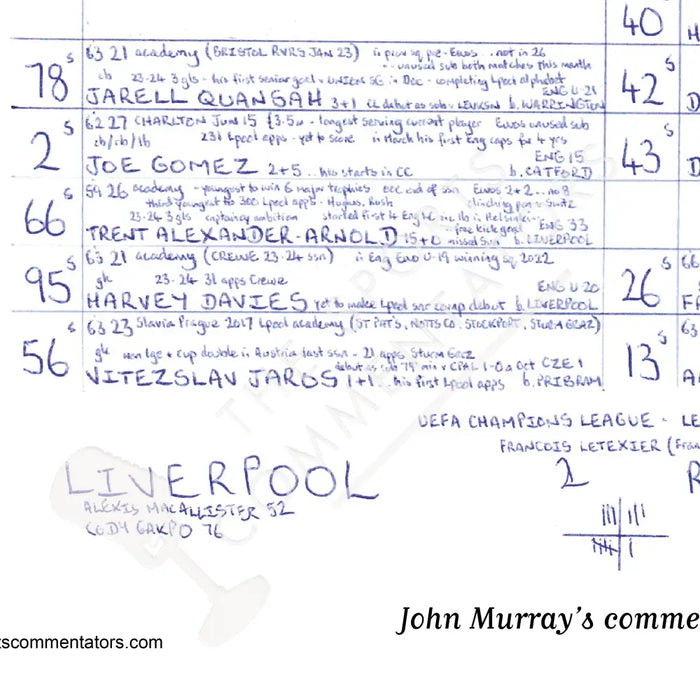 40
78 s 63 21 academy (BRISTOL RVRS JAN 23) in prov sq pre-Euros .. not in 26
.. unused sub both matches this month
cb 23-24 3 gls - his first senior goal v UNION SG in Dec - completing Lpool alphabet
JARELL QUANSAH 3+1 CL debut as sub v LEVKSN b. WARRINGTON ENG U-21
42 s
2 s 62 27 CHARLTON JUN 15 £3.5m - longest serving current player Euros unused sub
cb/rb/lb 231 Lpool apps - yet to score in March his first Eng caps for 4 yrs
ENG 15
JOE GOMEZ 2+5 .. his starts in CC b. CATFORD
43 s
66 s 59 26 academy - youngest to win 6 major trophies OOC end of ssn Euros 2+2 .. no 8
third youngest to 300 Lpool apps - Hughes, Rush clinching pen v Switz
23-24 3 gls captaincy ambition started first in Eng in lb in Helsinki
.. free kick goal ENG 33
TRENT ALEXANDER-ARNOLD 15+0 missed Sun b. LIVERPOOL
95 s 63 21 academy (CREWE 23-24 ssn) in Eng Euro U-19 winning sq 2022
gk 23-24 31 apps Crewe
ENG U-20
HARVEY DAVIES yet to make Lpool snr comp debut b. LIVERPOOL
26 s 66
56 s 63 23 Slavia Prague 2017 Lpool academy (ST PAT'S, NOTTS CO, STOCKPORT, STURM GRAZ)
gk won lge + cup double in Austria last ssn - 21 apps Sturm Graz
debut as sub 79 min v CPAL 1-0 a Oct CZE 1
VITEZSLAV JAROS 1+1 .. his first Lpool apps b. PRIBRAM
13 s 63
UEFA CHAMPIONS LEAGUE - LE
FRANCOIS LETEXIER (Fran
LIVERPOOL
2
ALEXIS MACALLISTER 52
CODY GAKPO 76
John Murray's comme
tscommentators.com
THE SPORTS COMMENTATORS